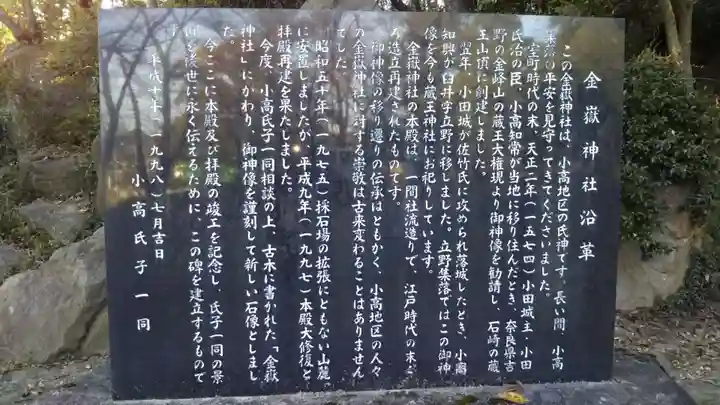 金嶽神社沿革
この金嶽神社は、小高地区の氏神です。長い間、小高
集落の平安を見守ってきてくださいました。
室町時代の末、天正二年（一五七四）小田城主・小田
氏治の臣、小高知常が当地に移り住んだとき、奈良県吉
野の金峰山の蔵王大権現より御神像を勧請し、石崎の蔵
王山頂に創建しました。
翌年、小田城が佐竹氏に攻められ落城したとき、小
知興が臼井字立野に移しました。立野集落ではこの御神
像を今も蔵王神社にお祀りしています。
金嶽神社の本殿は、一間社流造りで、江戸時代の末
造立再建されたものです。
御神像の移り遷りの伝承はともかく、小高地区の人々
の金嶽神社に対する崇敬は古来変わることはありません
でした。
昭和五十年（一九七五）採石場の拡張にともない山麓
に安置しましたが、平成九年（一九九七）本殿大修復と
拝殿再建を果たしました。
今度、小高氏子一同相談の上、古木に書かれた「金嶽
神社」にかわり、御神像を謹刻して新しい石像としまし
た。
今ここに本殿及び拝殿の竣工を記念し、氏子一同の
を後世に永く伝えるために、この碑を建立するもので
す
平成十年（一九九八）七月吉日
小高氏子一同